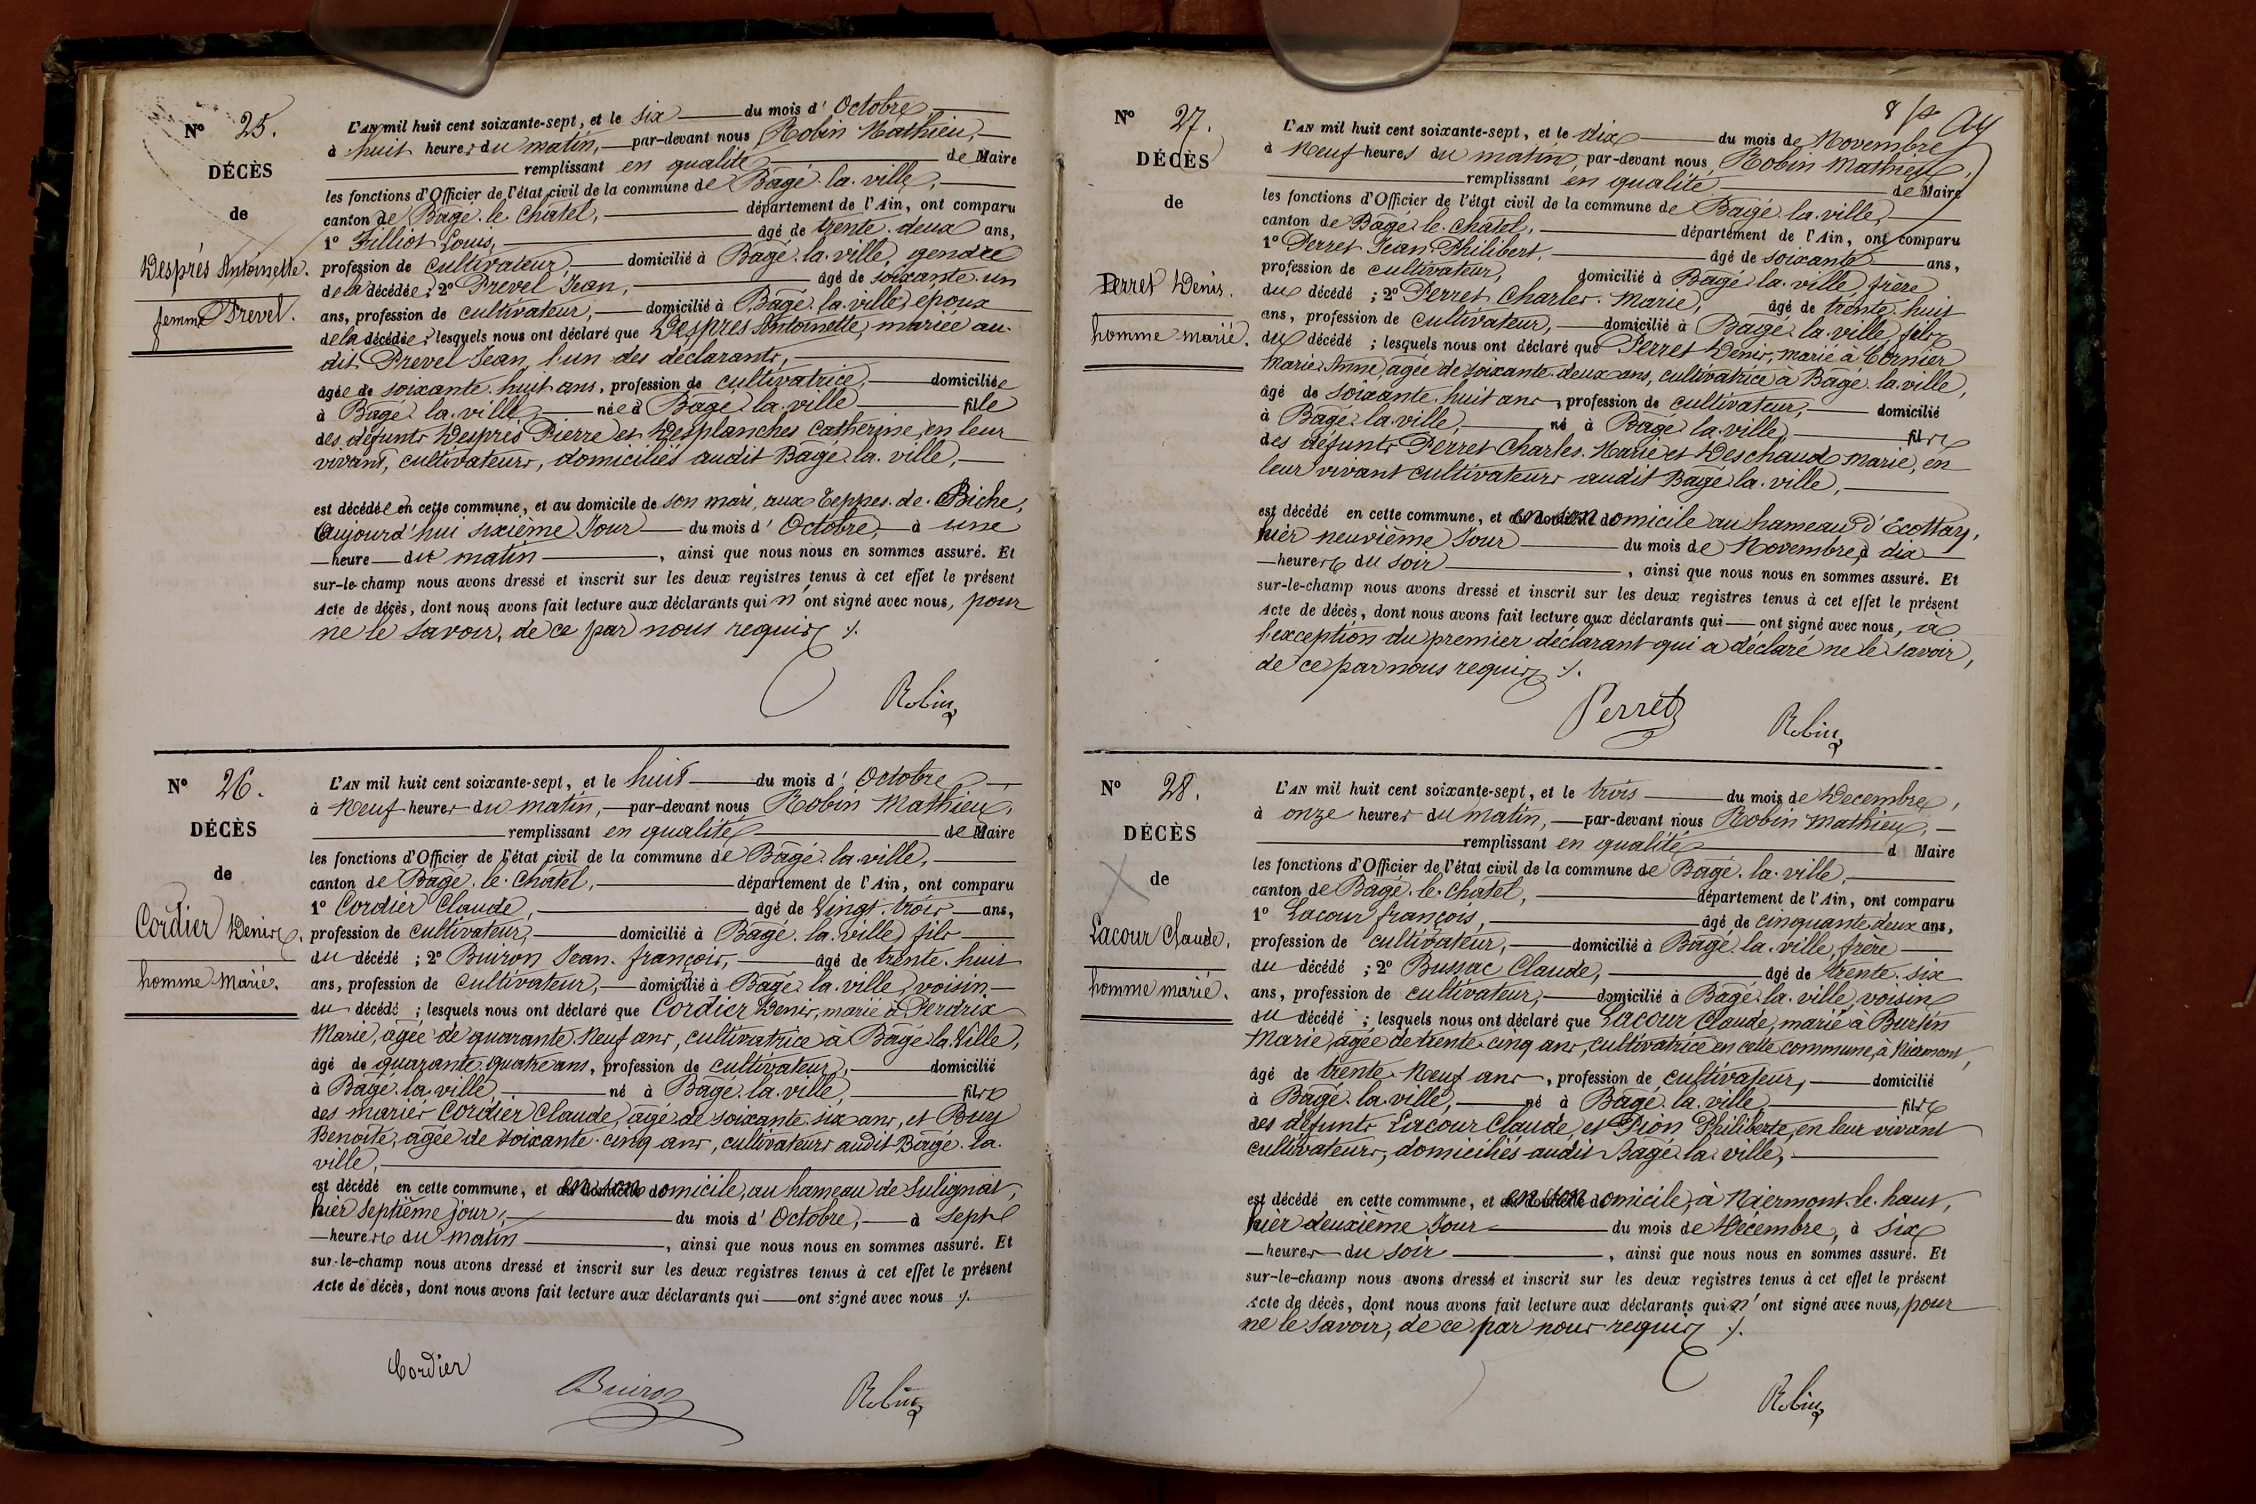 N° 25.
DÉCÈS
de
Després Antoinette.
femme Prevel.
L'AN mil huit cent soixante-sept, et le six du mois d' Octobre
à huit heures du matin, par-devant nous Robin Mathieu,
remplissant en qualité de Maire
les fonctions d'Officier de l'état civil de la commune de Bâgé-la-ville,
canton de Bâgé-le-Châtel, département de l'Ain, ont comparu
1° Filliot Louis, âgé de trente-deux ans,
profession de cultivateur, domicilié à Bâgé-la-ville, gendre
de la décédée; 2° Prevel Jean, âgé de soixante-un
ans, profession de cultivateur, domicilié à Bâgé-la-ville, époux
de la décédée; lesquels nous ont déclaré que Després Antoinette, mariée au-
dit Prevel Jean, l'un des déclarants,
âgée de soixante-huit ans, profession de cultivatrice, domiciliée
à Bâgé-la-ville, née à Bâgé-la-ville fille
des défunts Després Pierre et Desplanches Catherine, en leur
vivant, cultivateurs, domiciliés audit Bâgé-la-ville,
est décédée en cette commune, et au domicile de son mari, aux Teppes-de-Biche,
Aujourd'hui sixième Jour du mois d' Octobre, à une
heure du matin, ainsi que nous nous en sommes assuré. Et
sur-le-champ nous avons dressé et inscrit sur les deux registres tenus à cet effet le présent
Acte de décès, dont nous avons fait lecture aux déclarants qui n'ont signé avec nous, pour
ne le savoir, de ce par nous requis ./.
Robin
N° 26.
DÉCÈS
de
Cordier Denis.
homme Marié.
L'AN mil huit cent soixante-sept, et le huit du mois d' Octobre
à Neuf heures du matin, par-devant nous Robin Mathieu,
remplissant en qualité de Maire
les fonctions d'Officier de l'état civil de la commune de Bâgé-la-ville,
canton de Bâgé-le-Châtel, département de l'Ain, ont comparu
1° Cordier Claude, âgé de Vingt-trois ans,
profession de cultivateur, domicilié à Bâgé-la-ville, fils
du décédé; 2° Buiron Jean-françois, âgé de trente-huit
ans, profession de cultivateur, domicilié à Bâgé-la-ville, voisin
du décédé; lesquels nous ont déclaré que Cordier Denis, marié à Perdrix
Marie, âgée de quarante-Neuf ans, cultivatrice à Bâgé-la-Ville,
âgé de quarante-quatre ans, profession de cultivateur, domicilié
à Bâgé-la-ville, né à Bâgé-la-ville, fils
des mariés Cordier Claude, âgé de soixante-six ans, et Buy
Benoîte, âgée de soixante-cinq ans, cultivateurs audit Bâgé-la-
ville,
est décédé en cette commune, et en son domicile, au hameau de Sulignat,
hier Septième jour, du mois d' Octobre, à Sept
heures du matin, ainsi que nous nous en sommes assuré. Et
sur-le-champ nous avons dressé et inscrit sur les deux registres tenus à cet effet le présent
Acte de décès, dont nous avons fait lecture aux déclarants qui ont signé avec nous ./.
Cordier Buiron Robin
8
N° 27.
DÉCÈS
de
Perret Denis.
homme marié.
L'AN mil huit cent soixante-sept, et le dix du mois de Novembre
à Neuf heures du matin, par-devant nous Robin Mathieu,
remplissant en qualité de Maire
les fonctions d'Officier de l'état civil de la commune de Bâgé-la-ville,
canton de Bâgé-le-Châtel, département de l'Ain, ont comparu
1° Perret Jean-Philibert, âgé de soixante ans,
profession de cultivateur, domicilié à Bâgé-la-ville, frère
du décédé; 2° Perret Charles-Marie, âgé de trente-huit
ans, profession de cultivateur, domicilié à Bâgé-la-ville, fils
du décédé; lesquels nous ont déclaré que Perret Denis, marié à Cornier
Marie-Anne, âgée de soixante-deux ans, cultivatrice à Bâgé-la-ville,
âgé de soixante-huit ans, profession de cultivateur, domicilié
à Bâgé-la-ville, né à Bâgé-la-ville, fils
des défunts Perret Charles-Marie et Deschaud Marie, en
leur vivant cultivateurs audit Bâgé-la-ville,
est décédé en cette commune, et en son domicile au hameau d'Ecottay,
hier neuvième Jour du mois de Novembre, à dix
heures du soir, ainsi que nous nous en sommes assuré. Et
sur-le-champ nous avons dressé et inscrit sur les deux registres tenus à cet effet le présent
Acte de décès, dont nous avons fait lecture aux déclarants qui ont signé avec nous, à
l'exception du premier déclarant qui a déclaré ne le savoir,
de ce par nous requis ./.
Perret Robin
N° 28.
DÉCÈS
de
Lacour Claude,
homme marié.
L'AN mil huit cent soixante-sept, et le trois du mois de Decembre,
à onze heures du matin, par-devant nous Robin Mathieu,
remplissant en qualité d Maire
les fonctions d'Officier de l'état civil de la commune de Bâgé-la-ville,
canton de Bâgé-le-Châtel, département de l'Ain, ont comparu
1° Lacour françois, âgé de cinquante-deux ans,
profession de cultivateur, domicilié à Bâgé-la-ville, frère
du décédé; 2° Bussac Claude, âgé de trente-six
ans, profession de cultivateur, domicilié à Bâgé-la-ville, voisin
du décédé; lesquels nous ont déclaré que Lacour Claude, marié à Burtin
Marie, âgée de trente-cinq ans, cultivatrice en cette commune, à Niermont,
âgé de trente-Neuf ans, profession de cultivateur, domicilié
à Bâgé-la-ville, né à Bâgé-la-ville fils
des défunts Lacour Claude et Pion Philiberte, en leur vivant
cultivateurs, domiciliés audit Bâgé-la-ville,
est décédé en cette commune, et en son domicile, à Niermont-le-haut,
hier deuxième Jour du mois de Décembre, à Six
heures du soir, ainsi que nous nous en sommes assuré. Et
sur-le-champ nous avons dressé et inscrit sur les deux registres tenus à cet effet le présent
Acte de décès, dont nous avons fait lecture aux déclarants qui n'ont signé avec nous, pour
ne le savoir, de ce par nous requis ./.
Robin